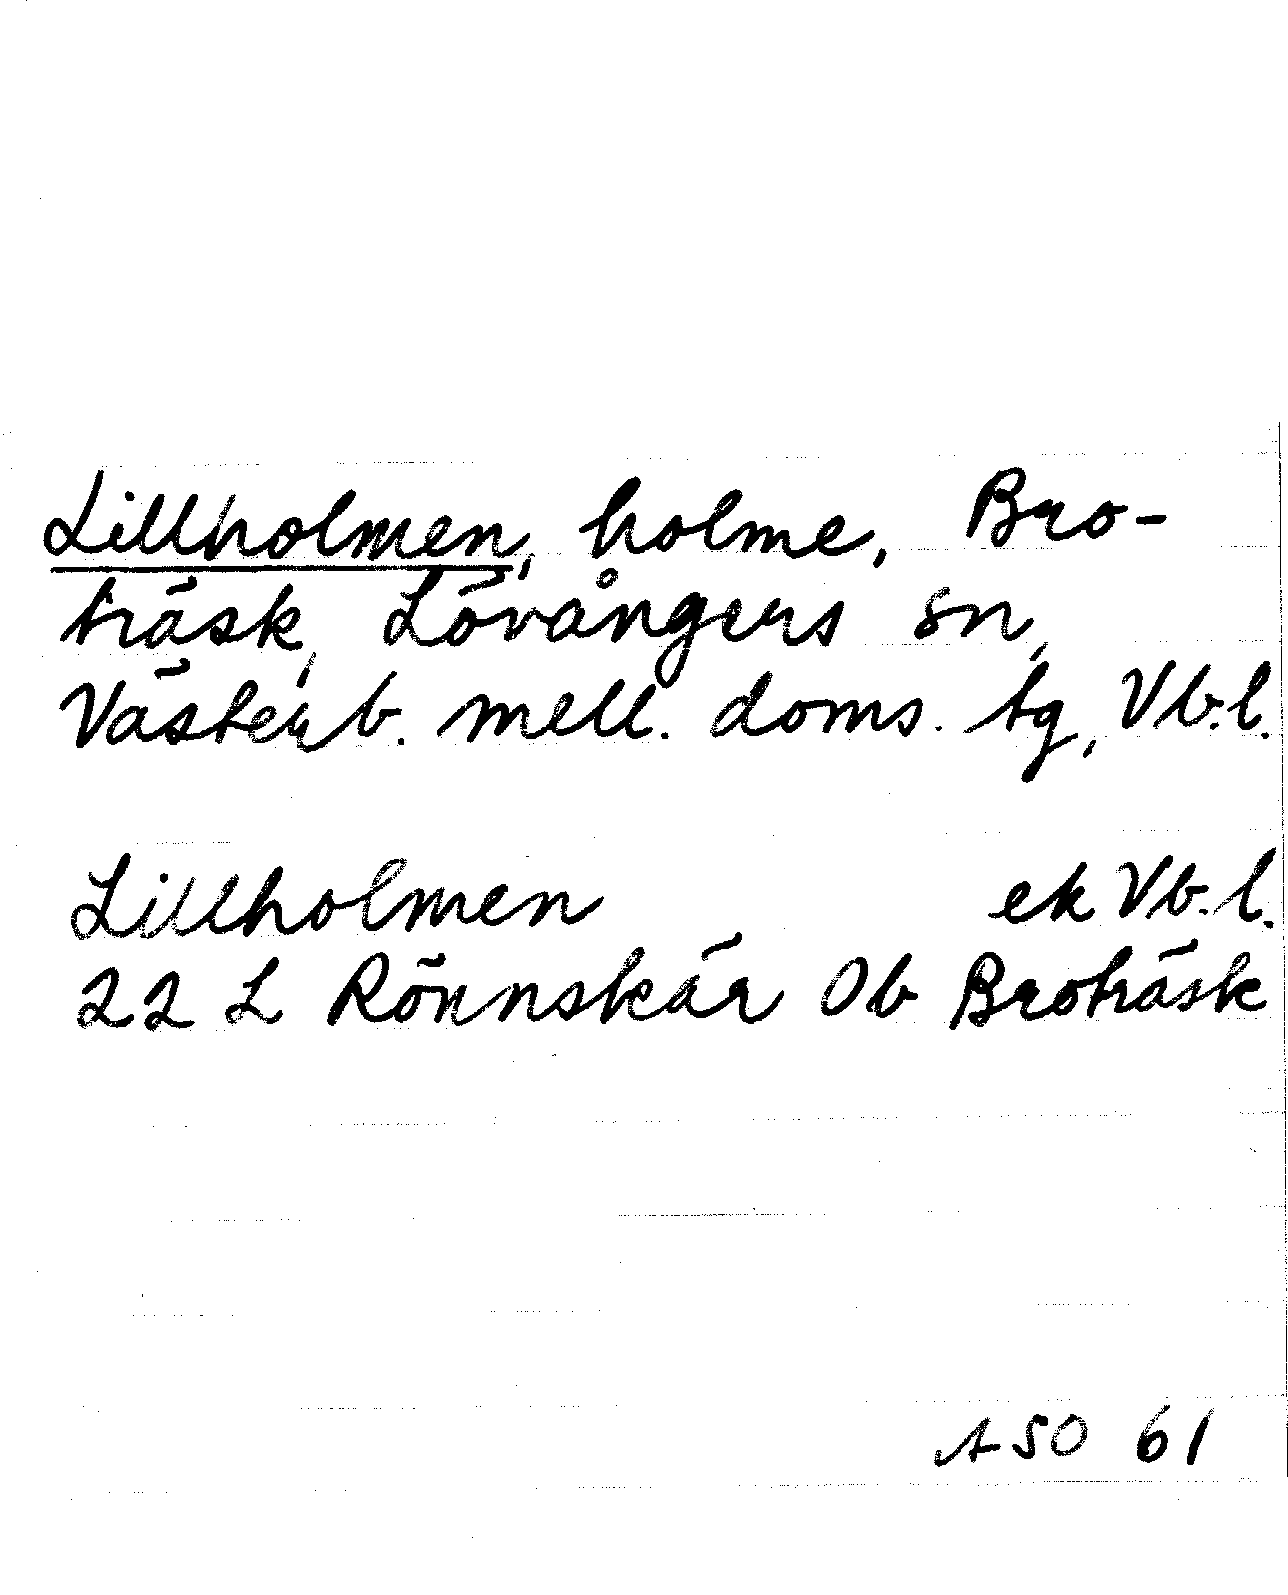 Lillholmen, holme, Bro-
träsk, Lövångers sn,
Västerb. mell. doms. tg, Vb.l.
Lillholmen ek Vb.l.
22 L Rönnskär Ob Broträsk
ASO 61